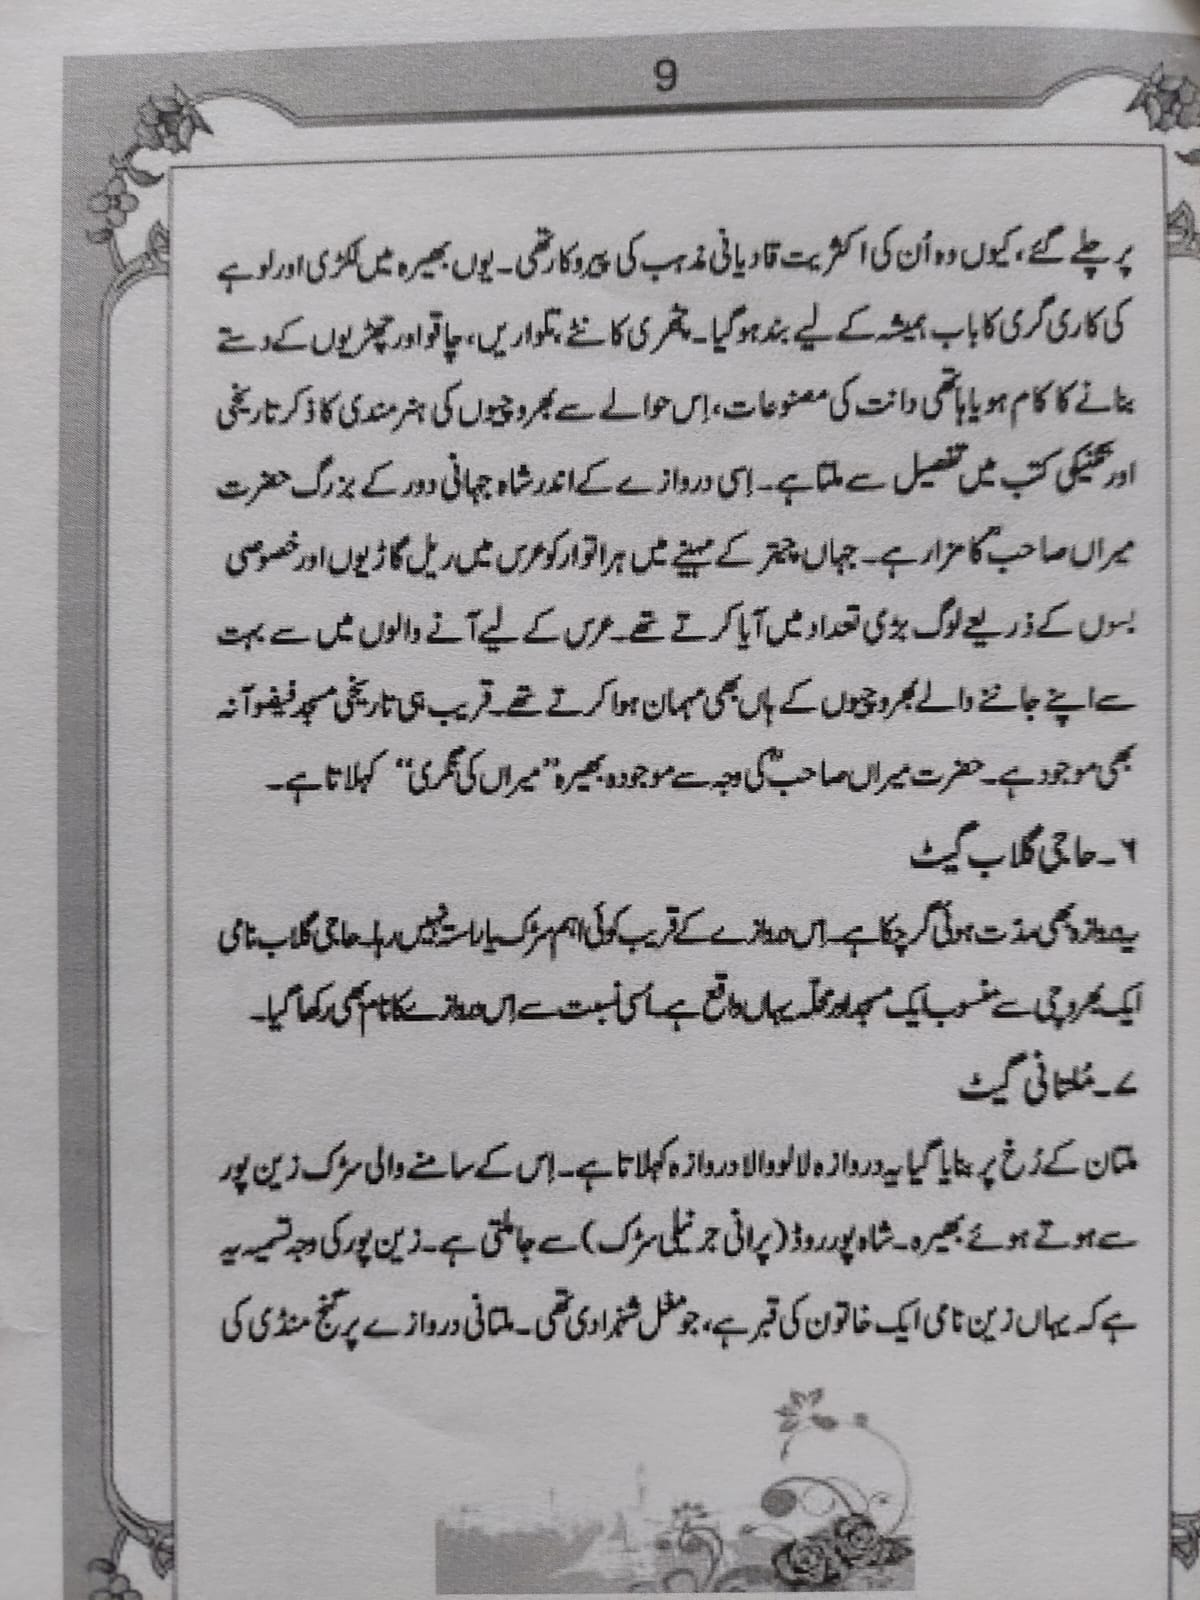 9
پر چلے گئے، کیوں وہ اُن کی اکثریت قادیانی مذہب کی پیروکار تھی۔ یوں بھیرہ میں لکڑی اور لوہے
کی کاری گری کا باب ہمیشہ کے لیے بند ہوگیا۔ چھری کانٹے، تلواریں، چاقو اور چھڑیوں کے دستے
بنانے کا کام ہو یا ہاتھی دانت کی مصنوعات، اِس حوالے سے بھروچیوں کی ہنر مندی کا ذکر تاریخی
اور تکنیکی کتب میں تفصیل سے ملتا ہے۔ اِسی دروازے کے اندر شاہ جہانی دور کے بزرگ حضرت
میراں صاحبؒ کا مزار ہے۔ جہاں چیتر کے مہینے میں ہر اتوار کو عرس میں ریل گاڑیوں اور خصوصی
بسوں کے ذریعے لوگ بڑی تعداد میں آیا کرتے تھے۔ عرس کے لیے آنے والوں میں سے بہت
سے اپنے جاننے والے بھروچیوں کے ہاں بھی مہمان ہوا کرتے تھے۔ قریب ہی تاریخی مسجد
بھی موجود ہے۔ حضرت میراں صاحبؒ کی وجہ سے موجودہ بھیرہ ”میراں کی نگری“ کہلاتا ہے۔
۶۔ حاجی گلاب گیٹ
یہ دروازہ بھی مدت ہوئی گر چکا ہے۔ اِس دروازے کے قریب کوئی اہم سڑک یا راستہ نہیں رہا۔ حاجی گلاب نامی
ایک بھروچی سے منسوب ایک مسجد اور محلّہ یہاں واقع ہے۔ اُسی نسبت سے اِس دروازے کا نام بھی رکھا گیا۔
۷۔ مُلتانی گیٹ
ملتان کے رُخ پر بنایا گیا یہ دروازہ لالو والا دروازہ کہلاتا ہے۔ اِس کے سامنے والی سڑک زین پور
سے ہوتے ہوئے بھیرہ۔ شاہ پور روڈ (پرانی جرنیلی سڑک) سے جا ملتی ہے۔ زین پور کی وجہ تسمیہ یہ
ہے کہ یہاں زین نامی ایک خاتون کی قبر ہے، جو مغل شہزادی تھی۔ ملتانی دروازے پر گنج منڈی کی